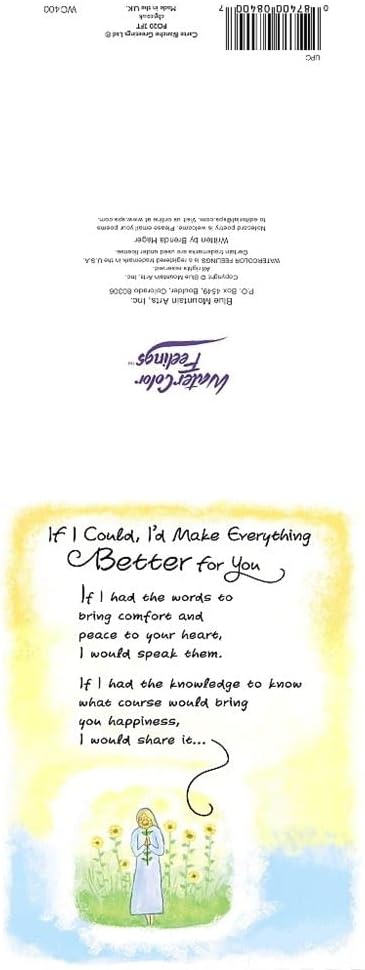 If I Could, I'd Make Everything
Better for You
If I had the words to
bring comfort and
peace to your heart,
I would speak them.
If I had the knowledge to know
what course would bring
you happiness,
I would share it...
WaterColor
Feelings™
Blue Mountain Arts, Inc.
P.O. Box 4549, Boulder, Colorado 80306
Copyright © Blue Mountain Arts, Inc.
All rights reserved.
WATERCOLOR FEELINGS is a registered trademark in the U.S.A.
Certain trademarks are used under license.
Written by Brenda Hager
Notecard poetry is welcome. Please email your poems
to editorial@sps.com. Visit us online at www.sps.com.
UPC
0 87400 08400 7
Carte Blanche Greetings Ltd ®
PO20 3FT
Made in the UK.
WC400